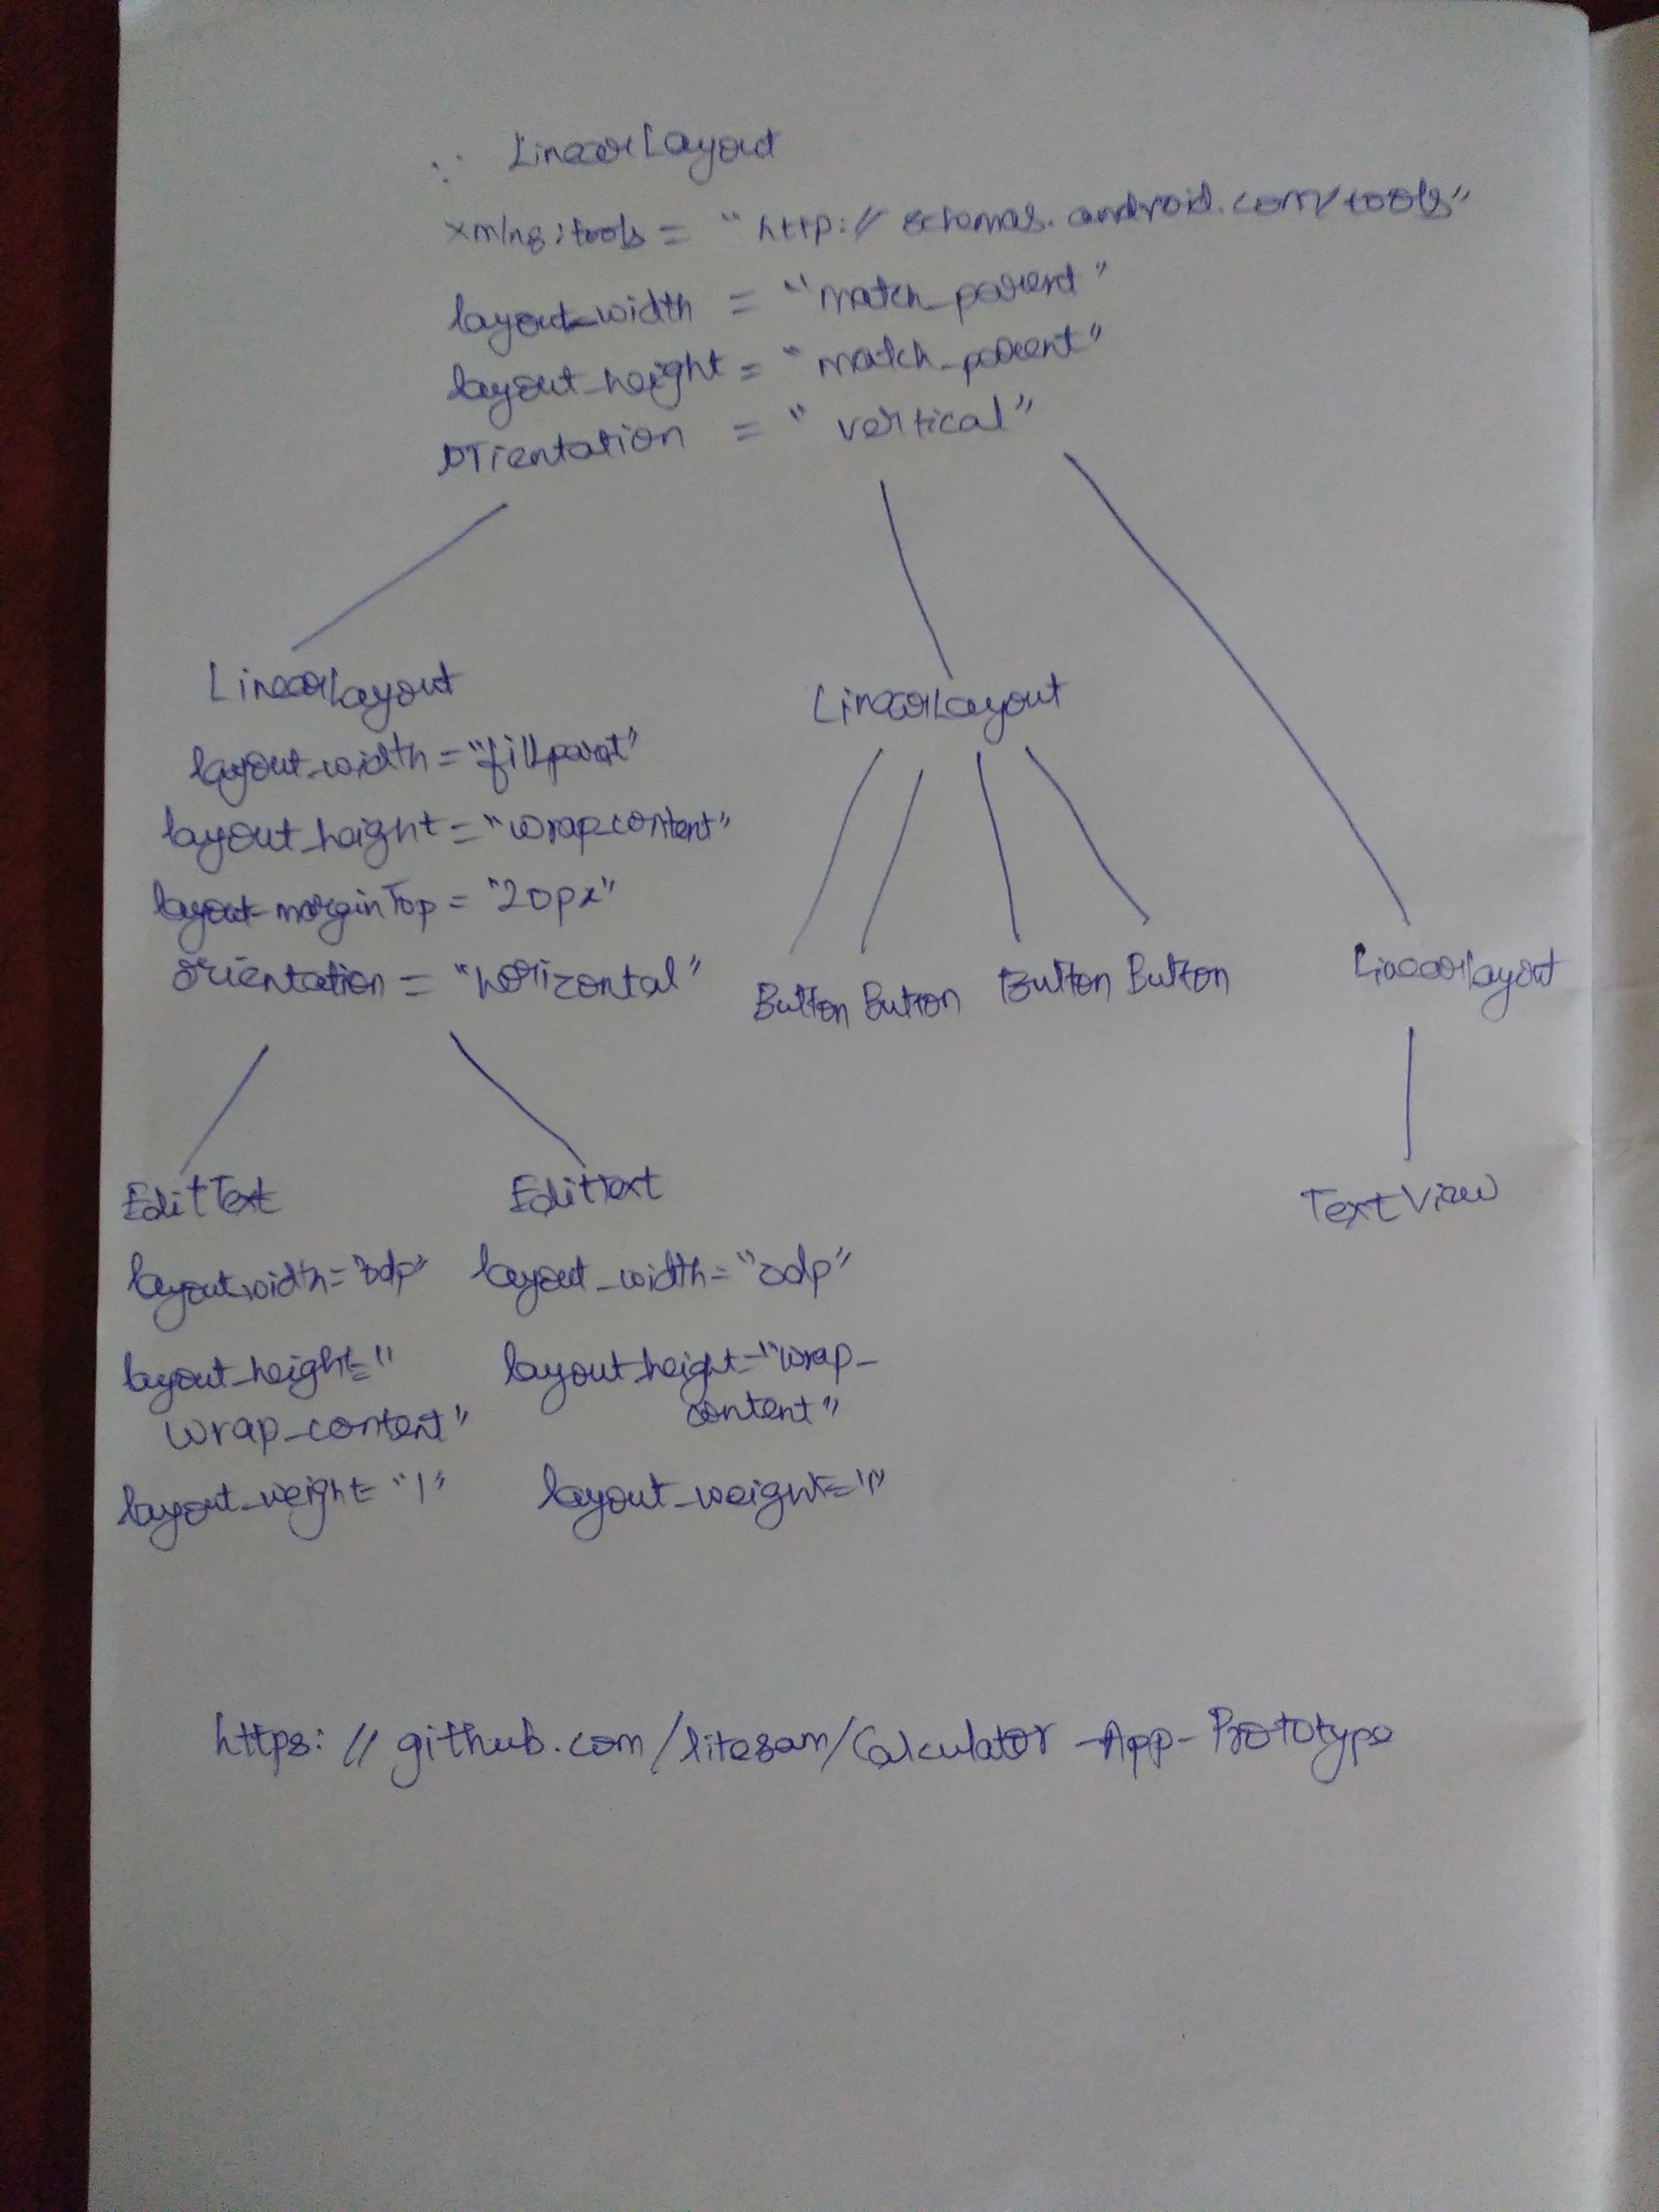 ∴ LinearLayout
xmlns:tools = "http://schemas.android.com/tools"
layout_width = "match_parent"
layout_height = "match_parent"
orientation = "vertical"
LinearLayout
layout_width="fillparent"
layout_height="wrap_content"
layout_marginTop="20px"
orientation="horizontal"
LinearLayout
Button Button Button Button
LinearLayout
EditText
layout_width="0dp"
layout_height="
wrap_content"
layout_weight="1"
EditText
layout_width="0dp"
layout_height="wrap_
content"
layout_weight="1"
TextView
https://github.com/litesam/Calculator-App-Prototype